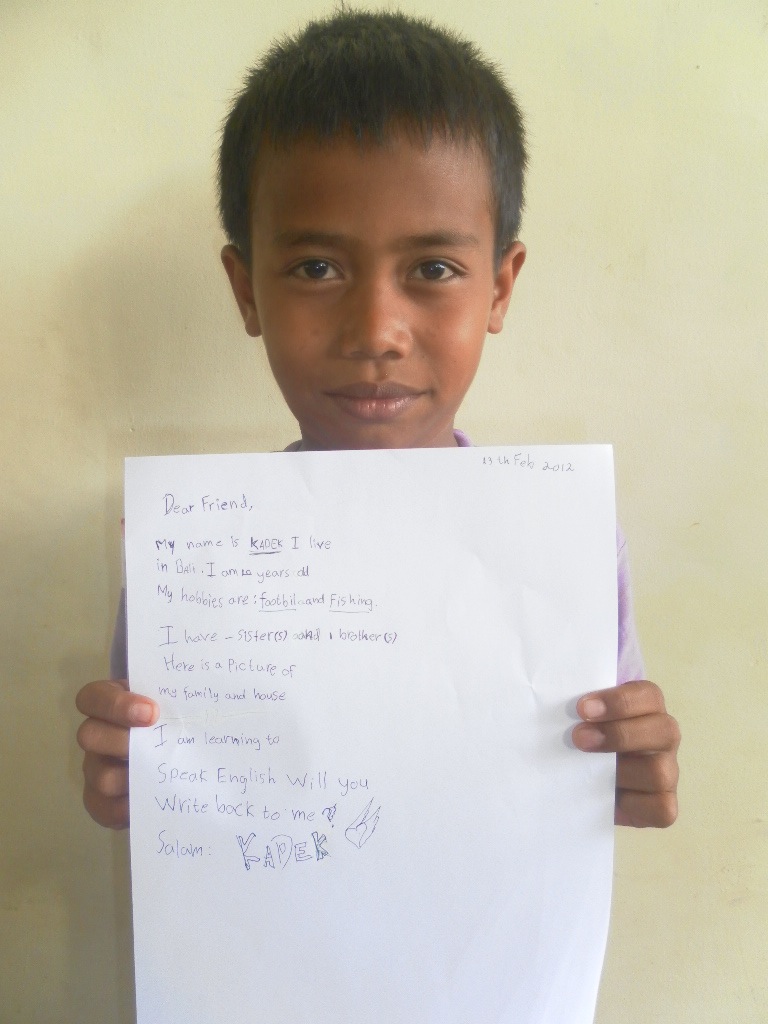 13th Feb 2012
Dear Friend,
My name is KADEK I live
in BALI. I am years old
My hobbies are: footbll and Fishing.
I have - sister(s) and 1 brother(s)
Here is a Picture of
my family and house
I am learning to
Speak English Will you
Write back to me?
Salam: KADEK